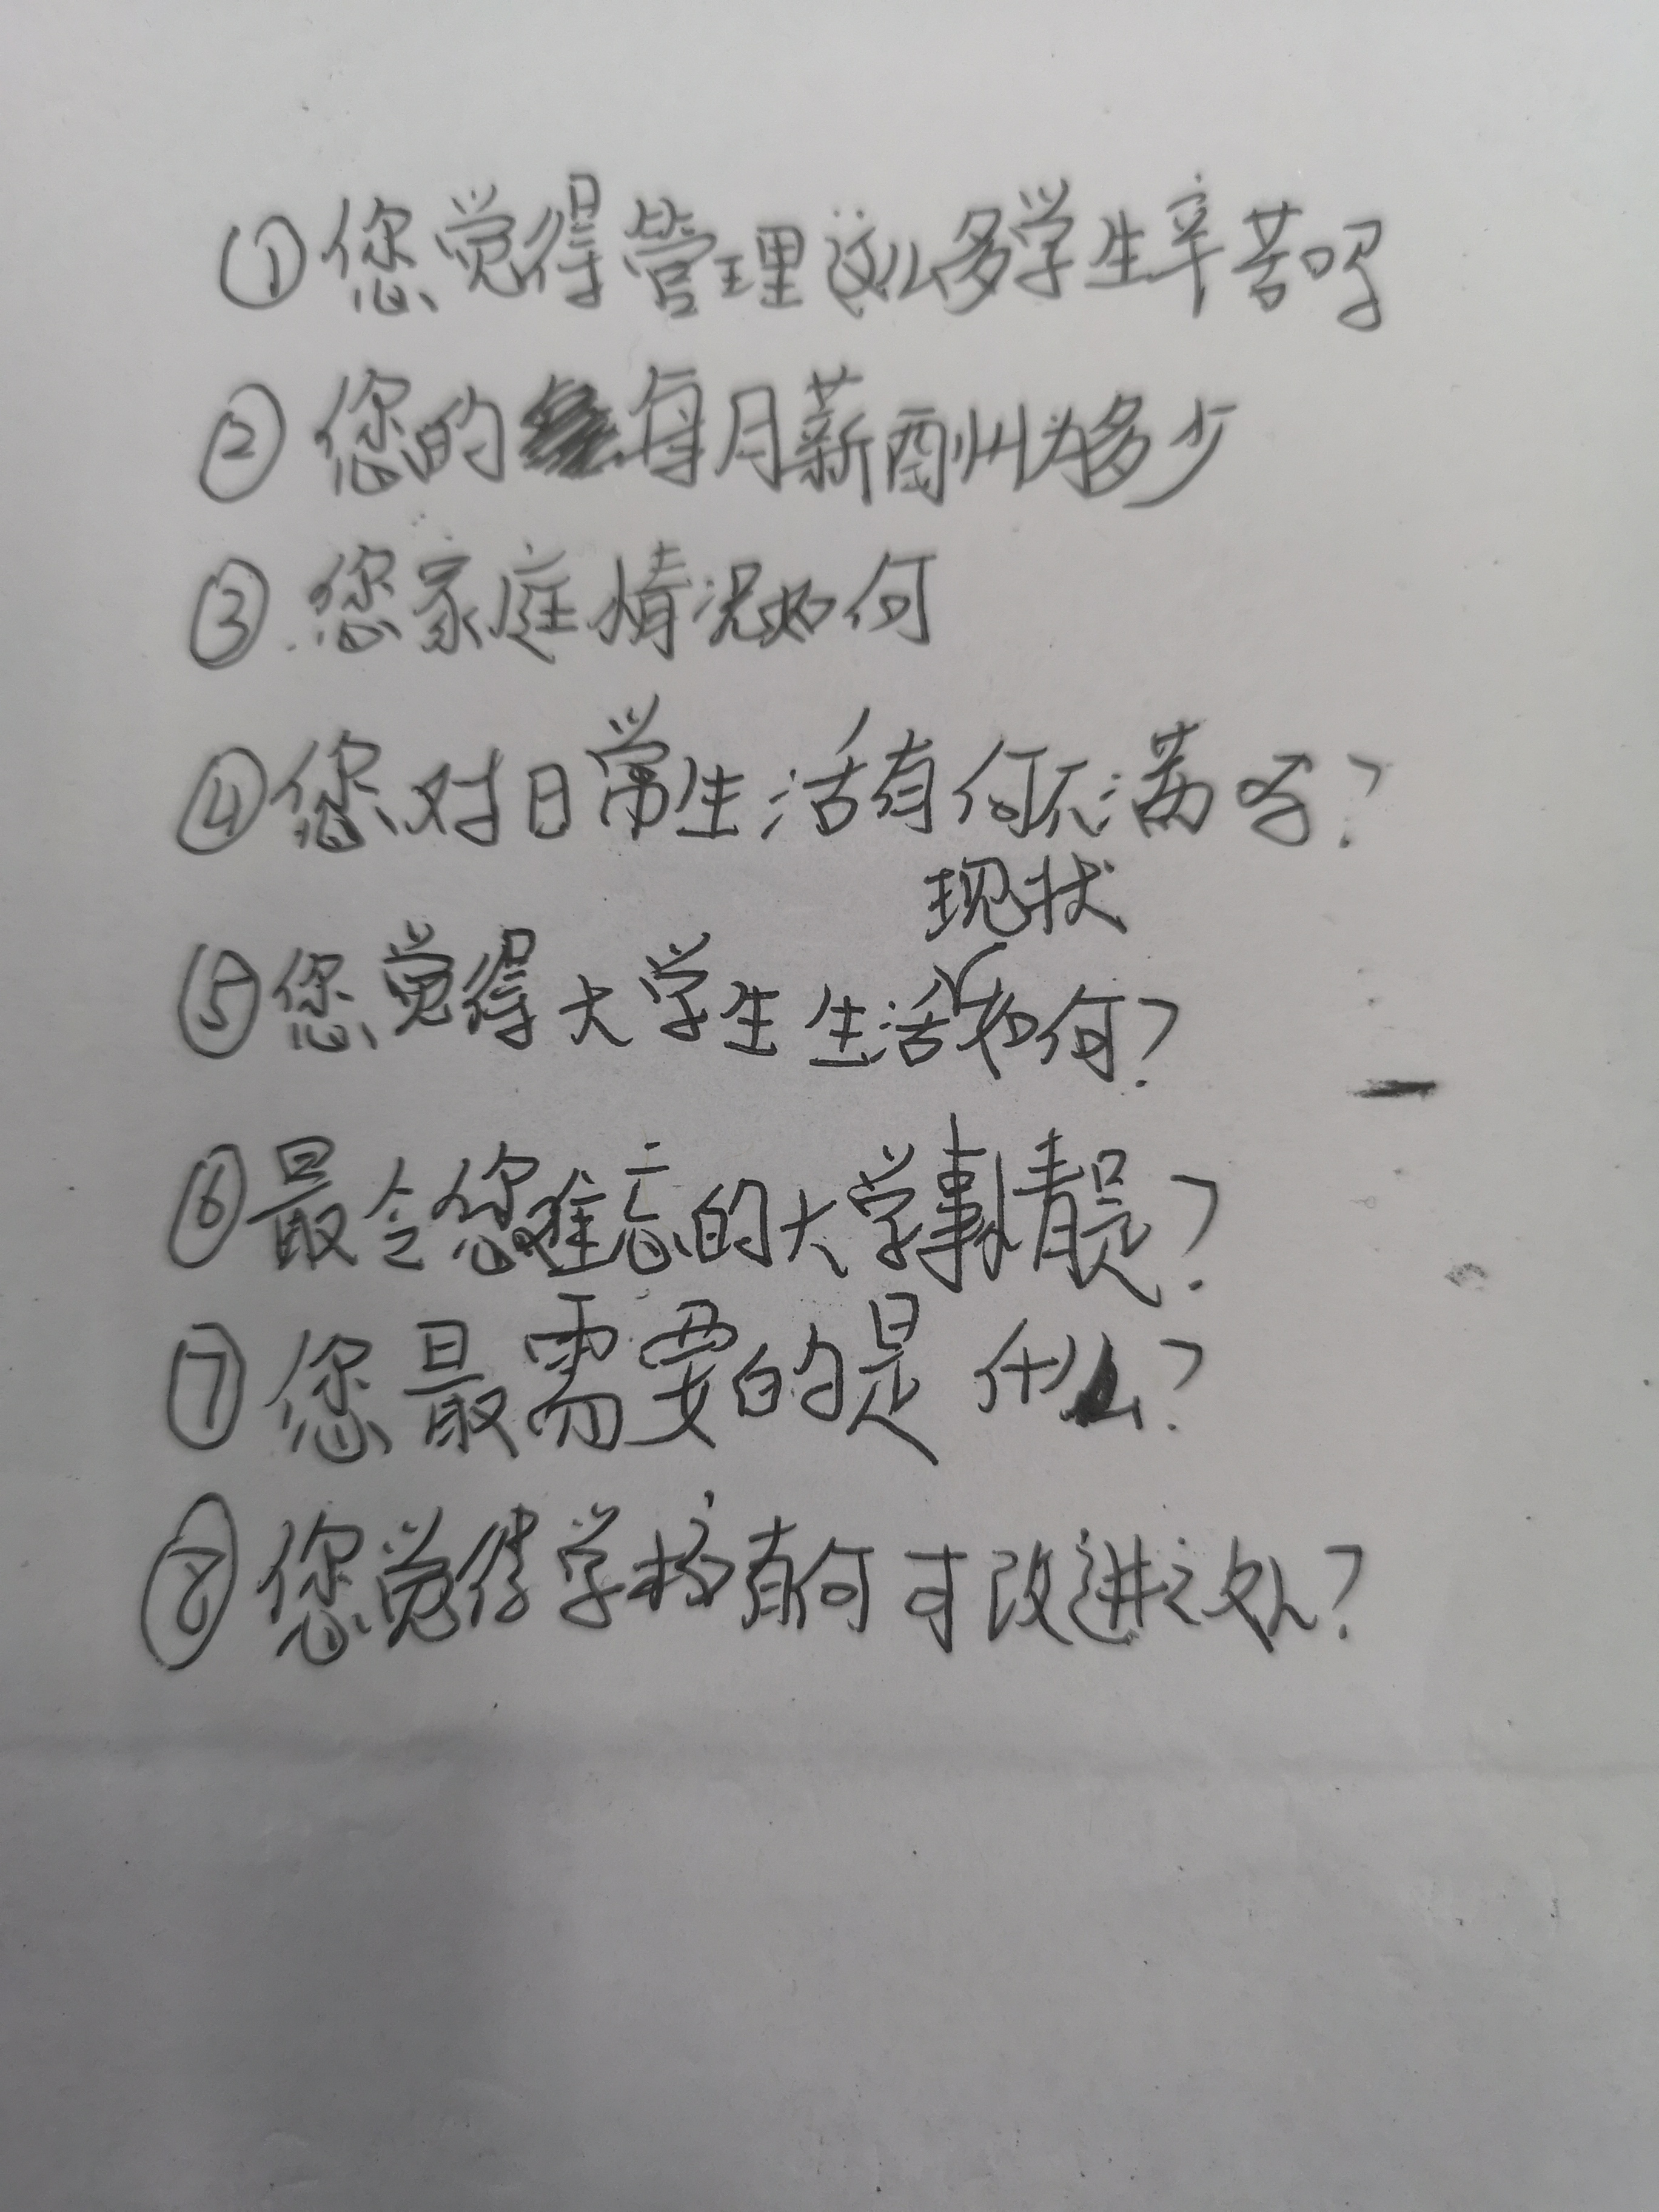 ①您觉得管理这么多学生辛苦吗
②您的每月薪酬为多少
③.您家庭情况如何
④您对日常生活有何不满吗?
现状
⑤您觉得大学生生活如何?
⑥最令您难忘的大学事情是?
⑦您最需要的是什么?
⑧您觉得学校有何可改进之处?